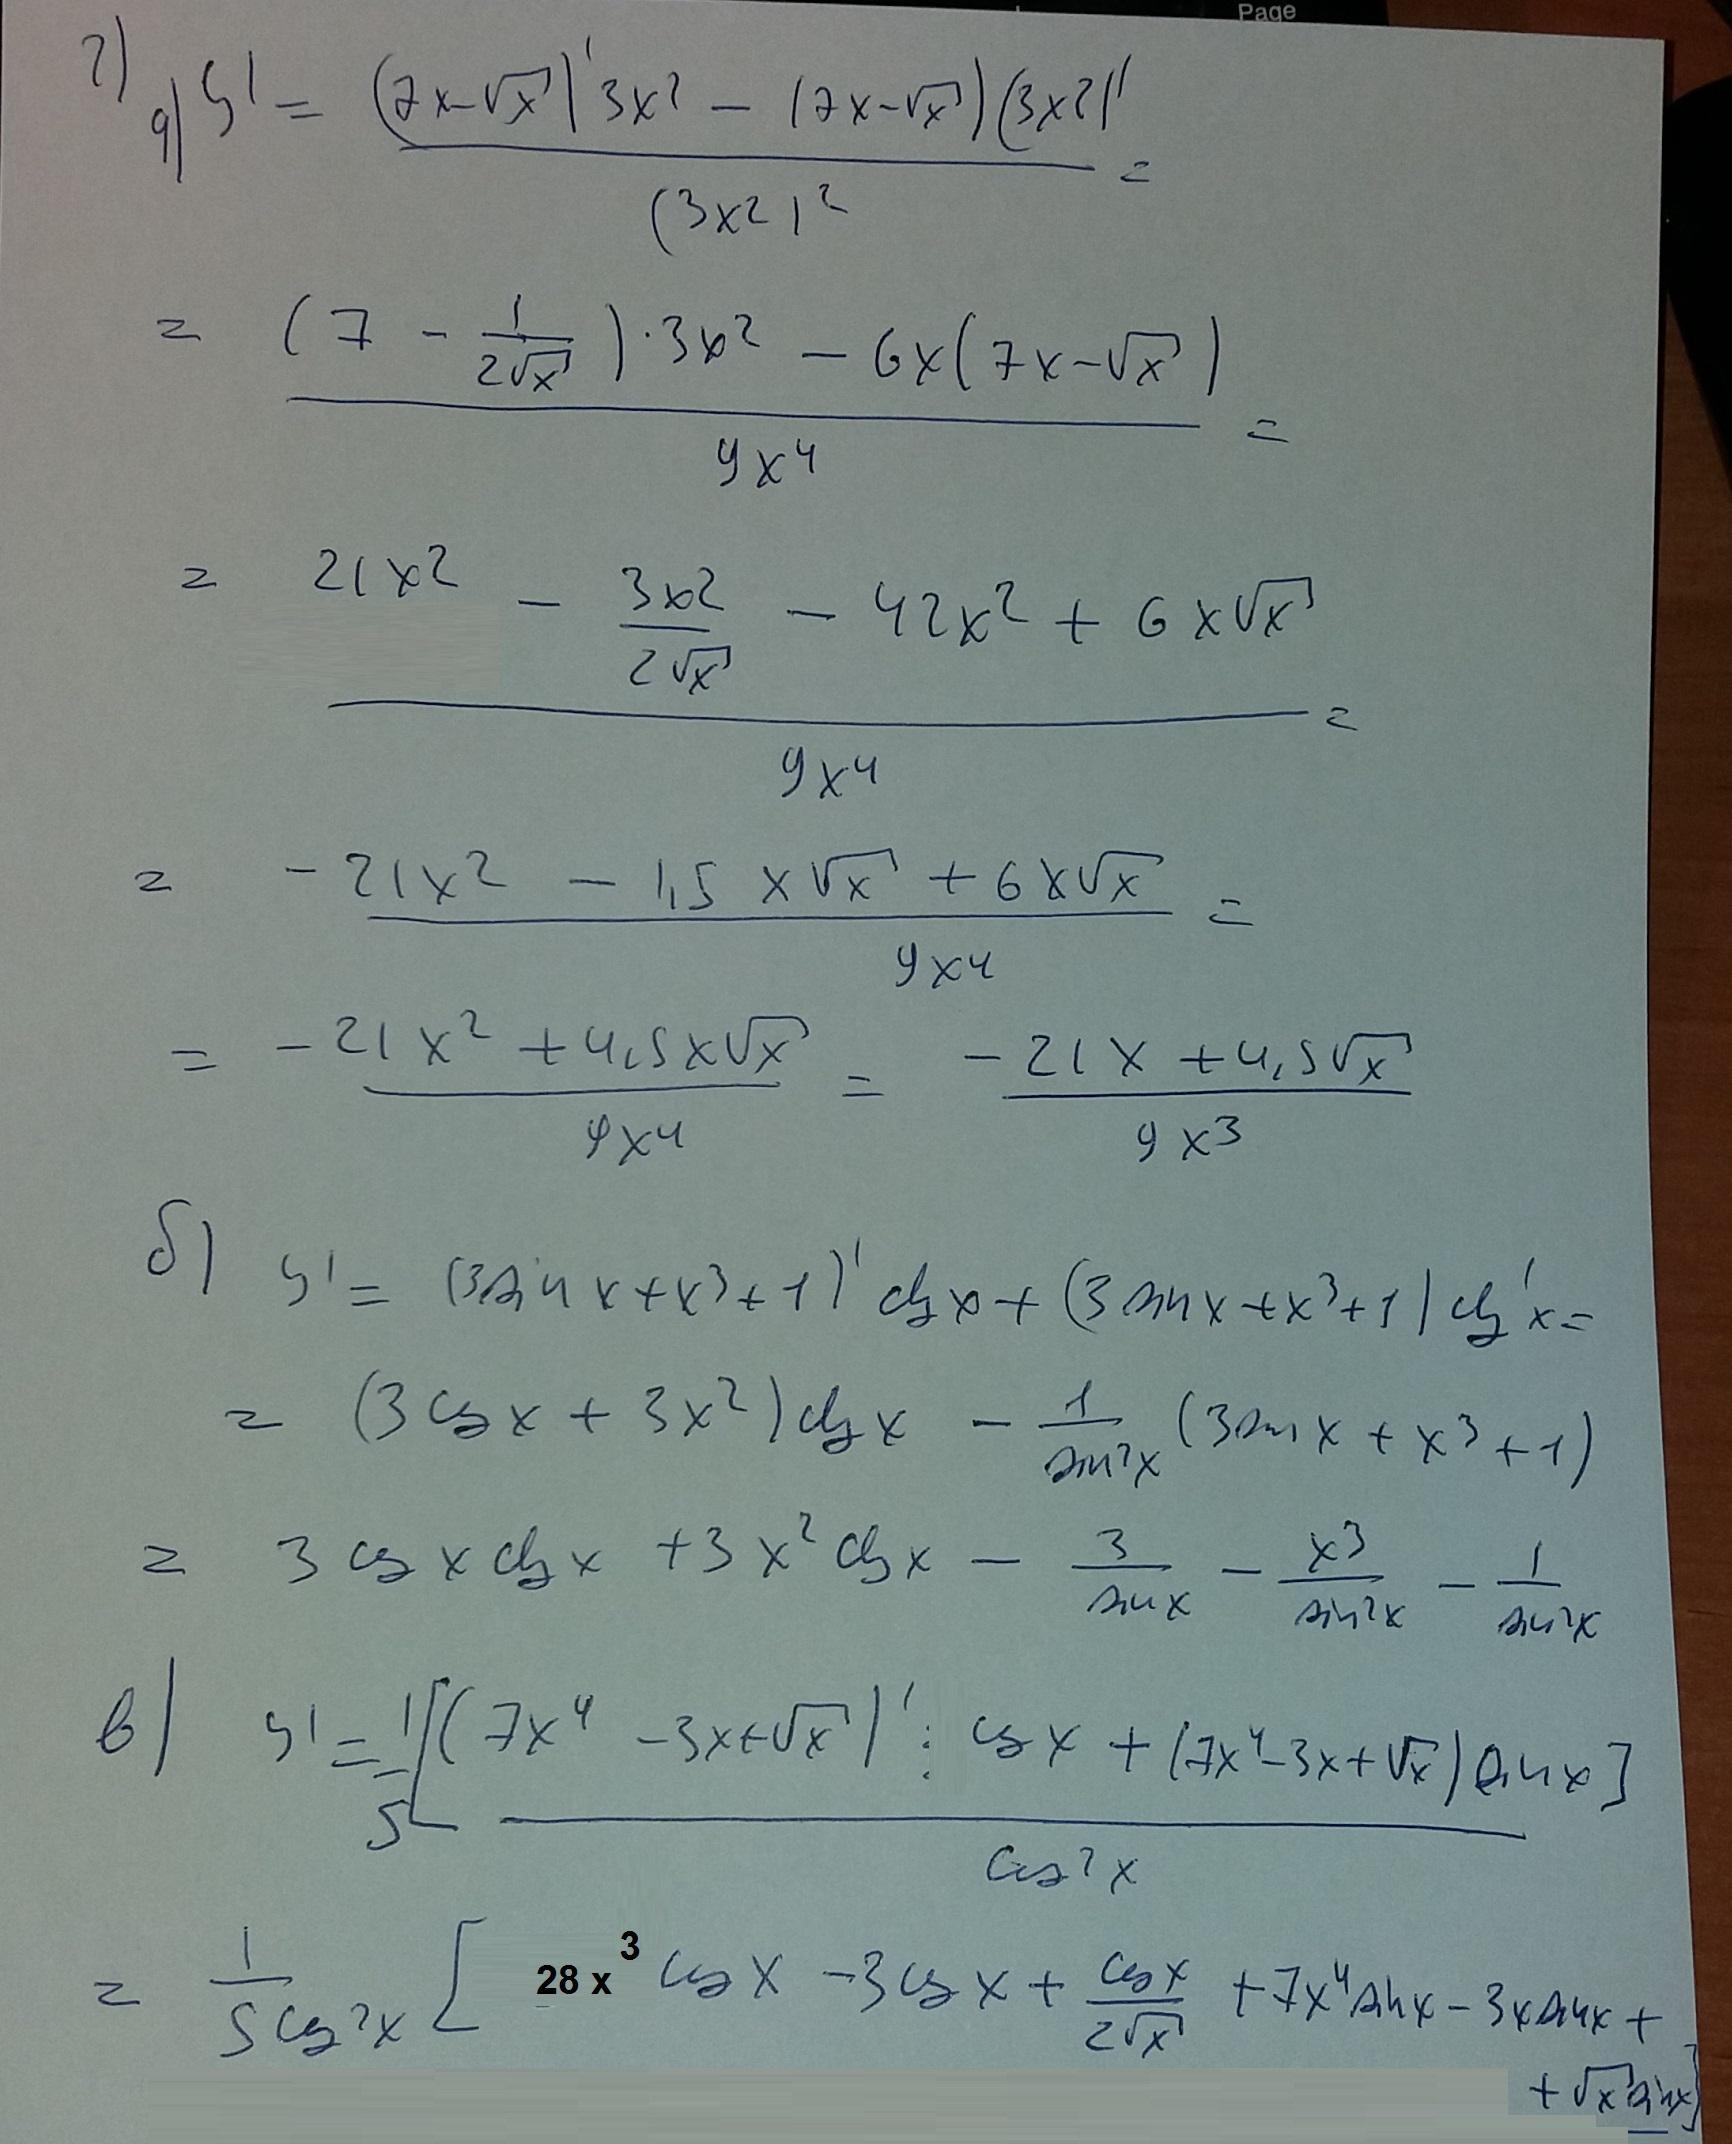 Page
2) а) y' = ((7x-√x)' 3x² - (7x-√x)(3x²)') / (3x²)² =
= ((7 - 1/(2√x))·3x² - 6x(7x-√x)) / 9x⁴ =
= (21x² - 3x²/(2√x) - 42x² + 6x√x) / 9x⁴ =
= (-21x² - 1,5x√x + 6x√x) / 9x⁴ =
= (-21x² + 4,5x√x) / 9x⁴ = (-21x + 4,5√x) / 9x³
б) y' = (3sinx+x³+1)' ctgx + (3sinx+x³+1) ctg'x =
= (3cosx + 3x²)ctgx - 1/sin²x (3sinx + x³ + 1)
= 3cosx ctgx + 3x² ctgx - 3/sinx - x³/sin²x - 1/sin²x
в) y' = 1/5 [((7x⁴ - 3x+√x)' : cosx + (7x⁴-3x+√x)sinx] / cos²x
= 1/(5cos²x) [28x³ cosx - 3cosx + cosx/(2√x) + 7x⁴sinx - 3xsinx +
+ √x sinx]